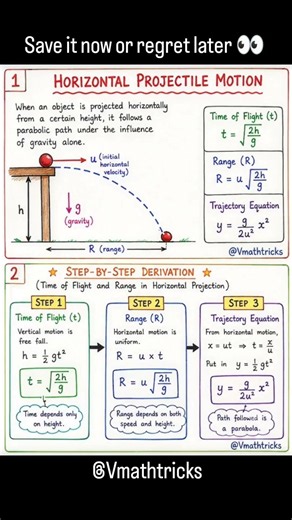 Save it now or regret later 👀
1 HORIZONTAL PROJECTILE MOTION
When an object is projected horizontally
from a certain height, it follows a
parabolic path under the influence
of gravity alone.
u (initial
horizontal
velocity)
h
g
(gravity)
R (range)
Time of Flight (t)
t = √(2h/g)
Range (R)
R = u √(2h/g)
Trajectory Equation
y = g/2u² x²
@Vmathtricks
2 ★ STEP-BY-STEP DERIVATION ★
(Time of Flight and Range in Horizontal Projection)
STEP 1
Time of Flight (t)
Vertical motion is
free fall.
h = 1/2 gt²
t = √(2h/g)
Time depends only
on height.
STEP 2
Range (R)
Horizontal motion is
uniform.
R = u × t
R = u √(2h/g)
Range depends on both
speed and height.
STEP 3
Trajectory Equation
From horizontal motion,
x = ut ⇒ t = x/u
Put in y = 1/2 gt²
y = g/2u² x²
Path followed is
a parabola.
@Vmathtricks
@Vmathtricks